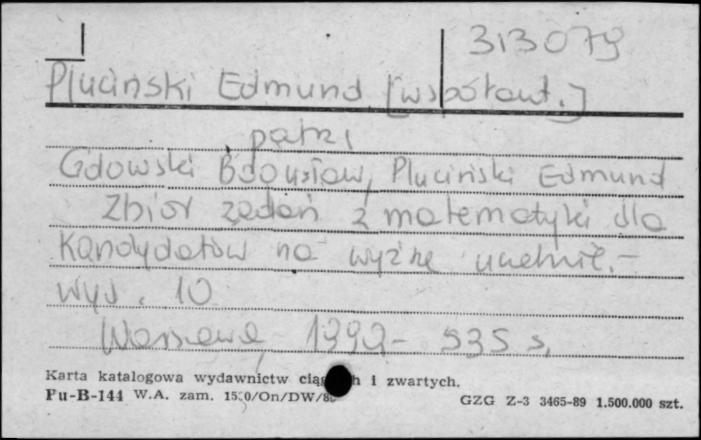 313079
Pluciński Edmund [współaut.]
patrz
Gdowski Bdgusław, Pluciński Edmund
Zbiór zadań z matematyki dla
Kandydatów na wyższe uczelnie.-
wyd. 10
Warszawa, 1993- 535 s.
Karta katalogowa wydawnictw h i zwartych.
Pu-B-144 W.A. zam. /On/DW/ GZG Z-3 3465-89 1.500.000 szt.